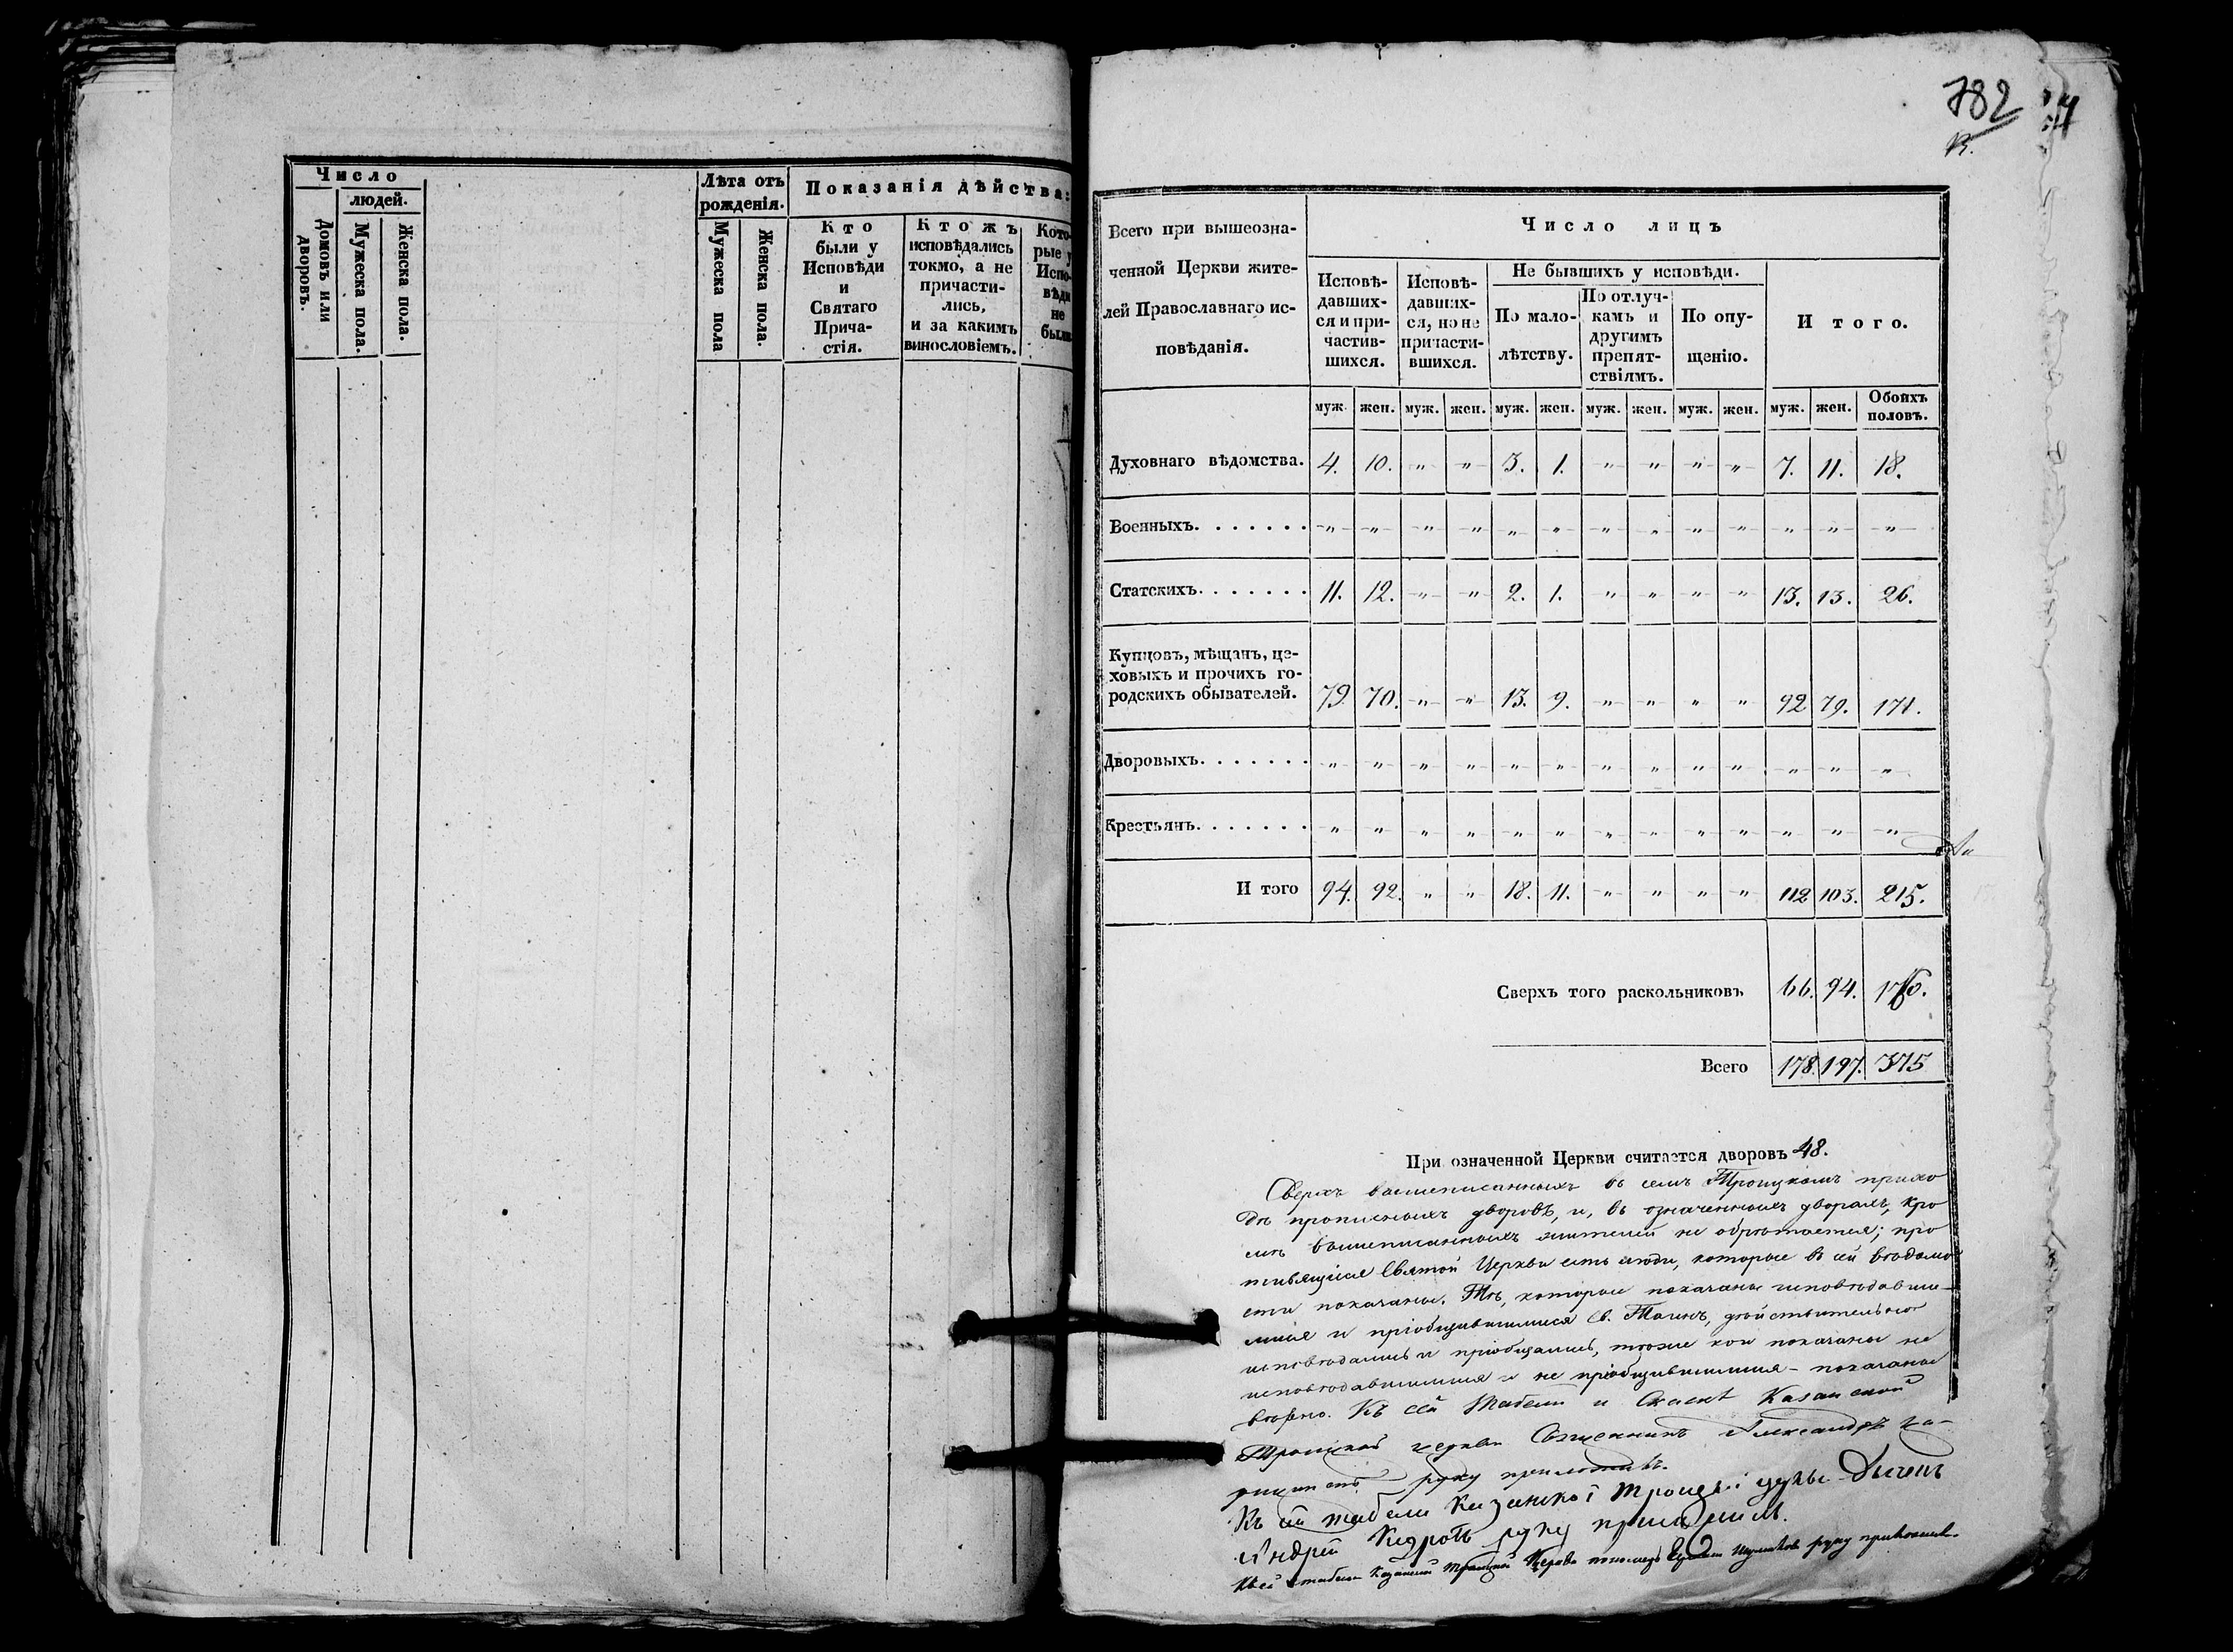 Число
людей.
Домовъ или дворовъ.
Мужеска пола.
Женска пола.
Лѣта отъ
рожденія.
Мужеска пола
Женска пола.
Показанія дѣйства:
Кто
были у
Исповѣди
и
Святаго
Прича-
стія.
Кто жъ
исповѣдались
токмо, а не
причасти-
лись,
и за какимъ
винословіемъ.
Кото-
рые у
Испо-
вѣди
не
были
782
Всего при вышеозна-
ченной Церкви жите-
лей Православнаго ис-
повѣданія.
Число лицъ
Исповѣ-
давших-
ся и при-
частив-
шихся.
Исповѣ-
давших-
ся, но не
причасти-
вшихся.
Не бывшихъ у исповѣди.
По мало-
лѣтству.
По отлуч-
камъ и
другимъ
препят-
ствіямъ.
По опу-
щенію.
И того.
муж. жен. муж. жен. муж. жен. муж. жен. муж. жен. муж. жен. Обоихъ половъ.
Духовнаго вѣдомства. 4. 10. „ „ 3. 1. „ „ „ „ 7. 11. 18.
Военныхъ. . . . . . . „ „ „ „ „ „ „ „ „ „ „ „ „
Статскихъ. . . . . . . 11. 12. „ „ 2. 1. „ „ „ „ 13. 13. 26.
Купцовъ, мѣщанъ, це-
ховыхъ и прочихъ го-
родскихъ обывателей. 79. 70. „ „ 13. 9. „ „ „ „ 92 79. 171.
Дворовыхъ. . . . . . . „ „ „ „ „ „ „ „ „ „ „ „ „
Крестьянъ. . . . . . . „ „ „ „ „ „ „ „ „ „ „ „ „
И того 94. 92. „ „ 18. 11. „ „ „ „ 112 103. 215.
Сверхъ того раскольниковъ 66. 94.
Всего 178. 197. 375
При означенной Церкви считается дворовъ 48.
Сверхъ вышеписанныхъ въ семъ Троицкомъ прихо
дѣ прописныхъ дворовъ, и, въ означенныхъ дворахъ, кро
мѣ вышеписанныхъ жителей не обрѣтается; про
тивящіеся Святой Церкви есть люди, которые въ сей вѣдомо
сти показаны. Тѣ, которые показаны исповѣдавши-
мися и пріобщившимися Св. Таинъ, дѣйствительно
исповѣдались и пріобщались, тѣже кои показаны не
исповѣдавшимися и не пріобщившимися – показаны
вѣрно. Къ сей табели и Казанской
Троицкой церкви Священникъ Александръ
руку приложилъ.
Къ сей табели Казанской Троицкой церкви
Андрей Кедровъ руку приложилъ.
Къ сей табели Казанской Троицкой Церкви пономарь руку приложилъ.